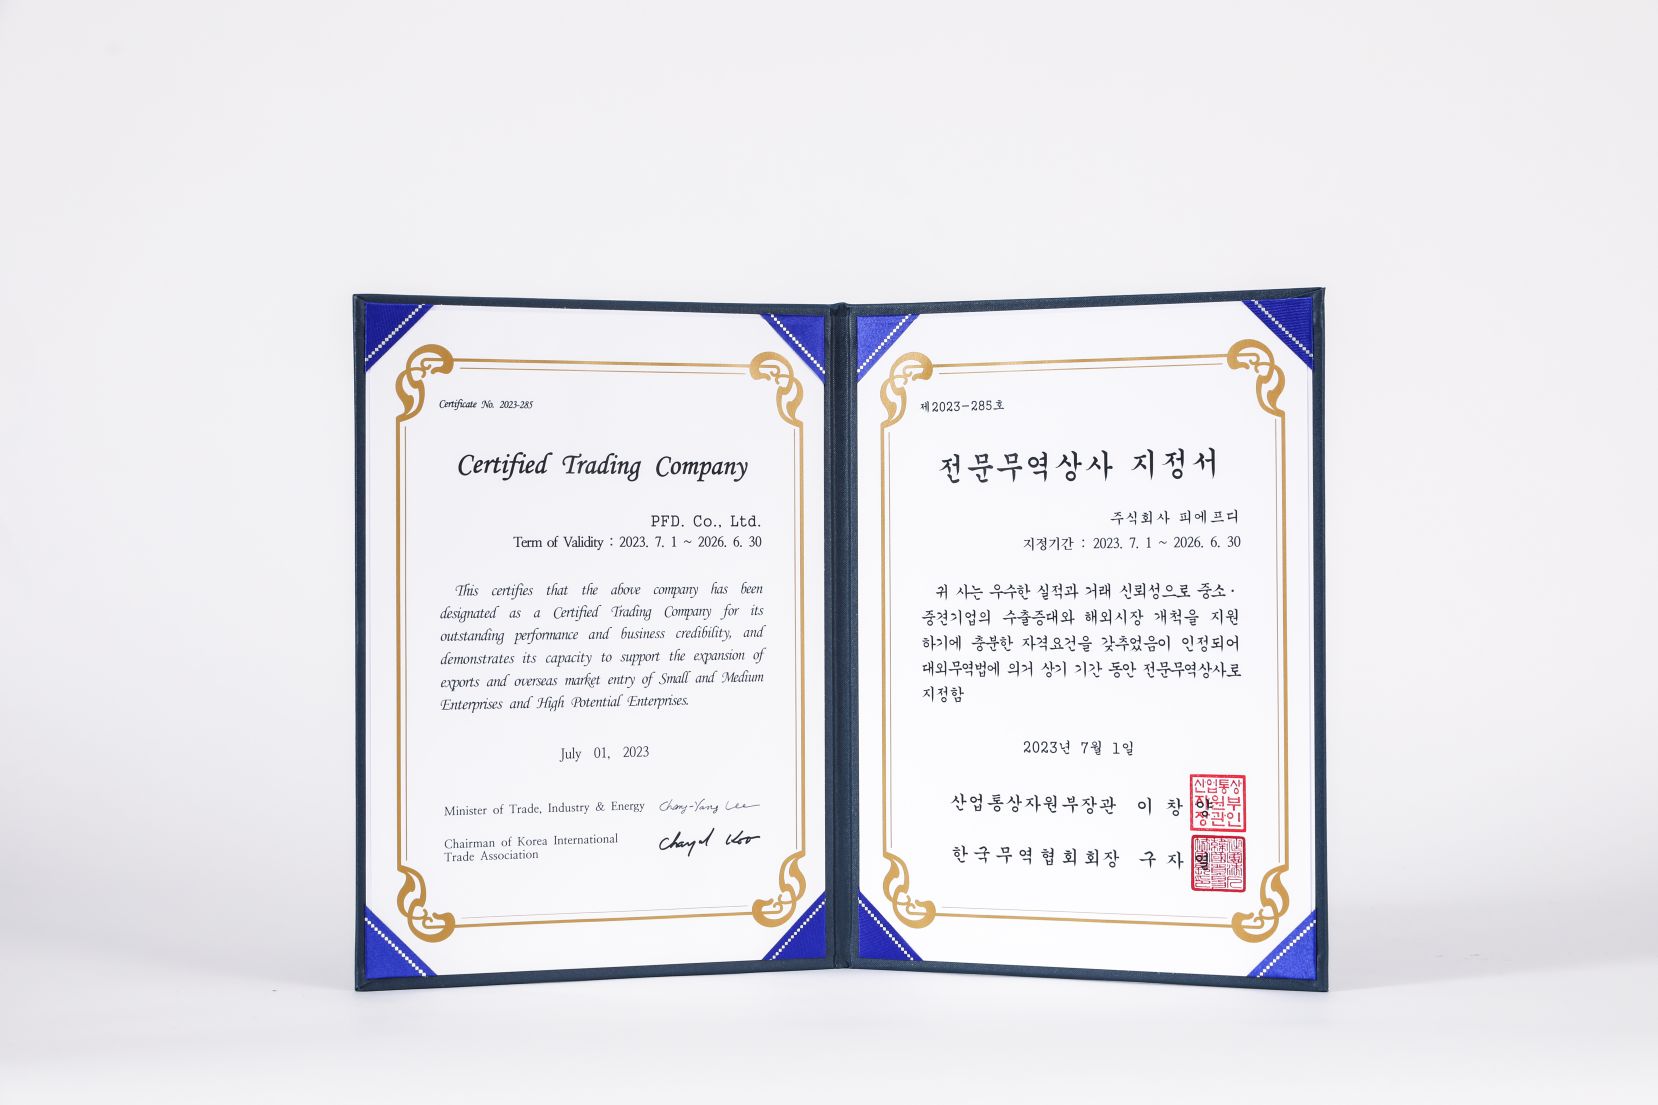 Certificate No. 2023-285
Certified Trading Company
PFD. Co., Ltd.
Term of Validity : 2023. 7. 1 ~ 2026. 6. 30
This certifies that the above company has been
designated as a Certified Trading Company for its
outstanding performance and business credibility, and
demonstrates its capacity to support the expansion of
exports and overseas market entry of Small and Medium
Enterprises and High Potential Enterprises.
July 01, 2023
Minister of Trade, Industry & Energy Chang-Yang Lee
Chairman of Korea International
Trade Association
제2023-285호
전문무역상사 지정서
주식회사 피에프디
지정기간 : 2023. 7. 1 ~ 2026. 6. 30
귀 사는 우수한 실적과 거래 신뢰성으로 중소·
중견기업의 수출증대와 해외시장 개척을 지원
하기에 충분한 자격요건을 갖추었음이 인정되어
대외무역법에 의거 상기 기간 동안 전문무역상사로
지정함
2023년 7월 1일
산업통상자원부장관 이 창 양
산업통상
자원부
장관인
한국무역협회회장 구 자 열